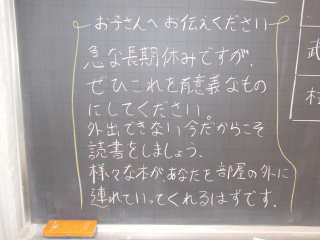 お子さんへお伝えください
急な長期休みですが、
ぜひこれを有意義なもの
にしてください。
外出できない今だからこそ
読書をしましょう。
様々な本があなたを部屋の外に
連れていってくれるはずです。
武